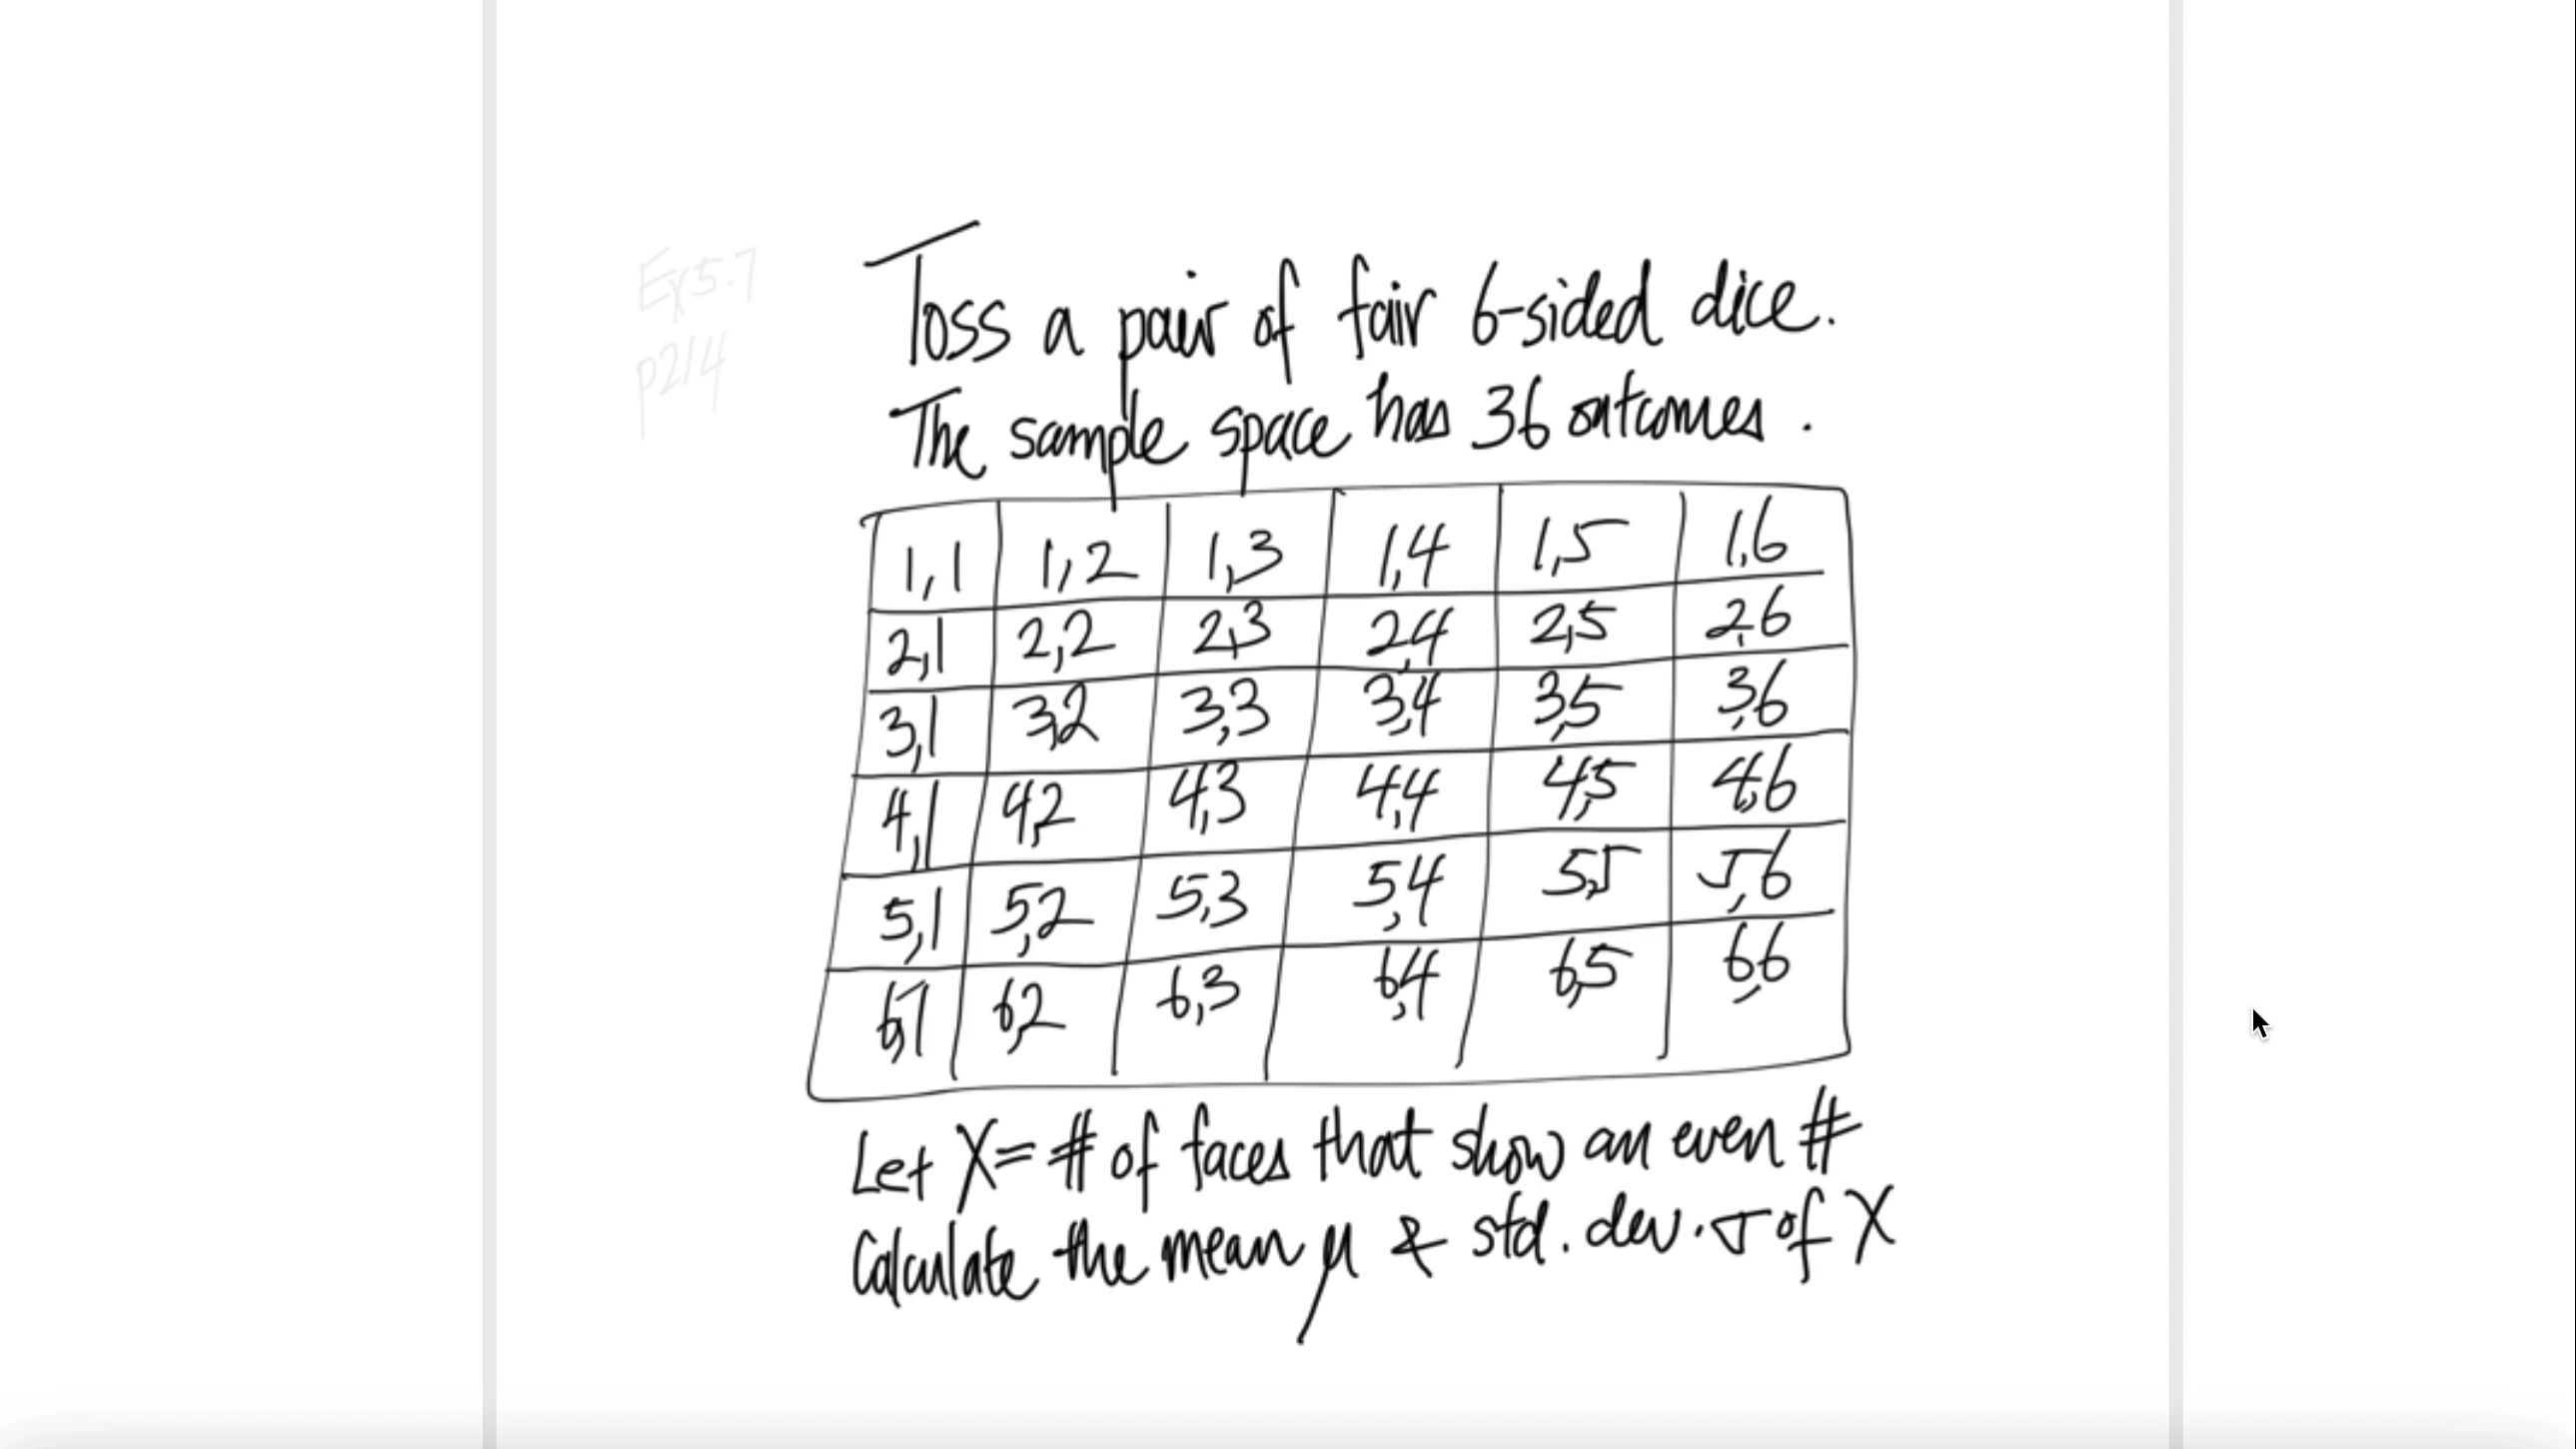 Ex5.7
p214
Toss a pair of fair 6-sided dice.
The sample space has 36 outcomes.
1,1 1,2 1,3 1,4 1,5 1,6
2,1 2,2 2,3 2,4 2,5 2,6
3,1 3,2 3,3 3,4 3,5 3,6
4,1 4,2 4,3 4,4 4,5 4,6
5,1 5,2 5,3 5,4 5,5 5,6
6,1 6,2 6,3 6,4 6,5 6,6
Let X = # of faces that show an even #
Calculate the mean μ & std. dev. σ of X